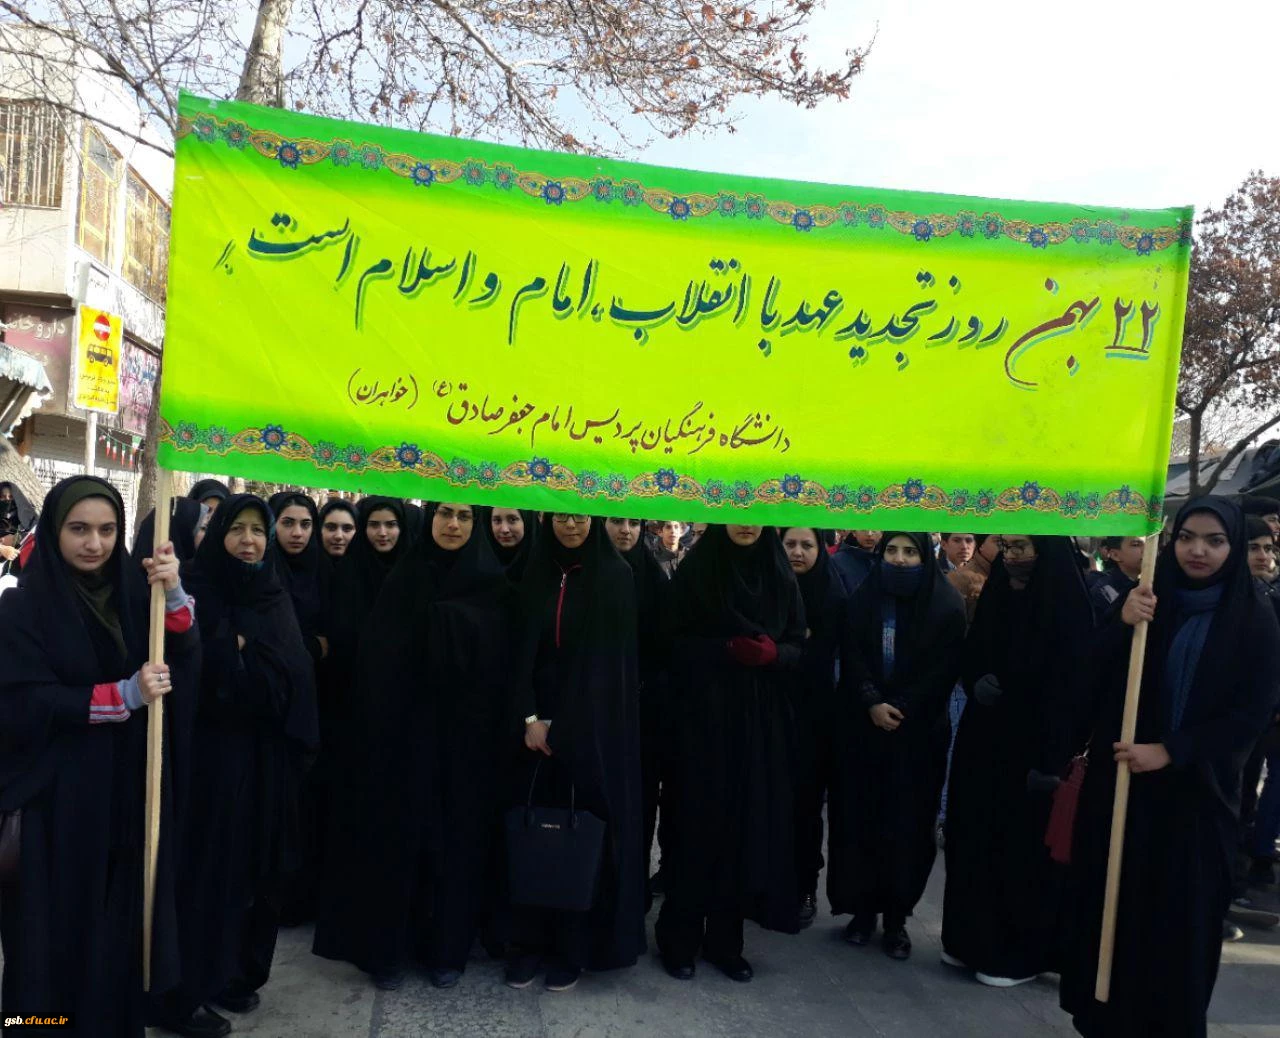 ۲۲ بهمن روز تجدید عهد با انقلاب، امام و اسلام است
دانشگاه فرهنگیان پردیس امام جعفر صادق (ع) (خواهران)
gsb.cfu.ac.ir